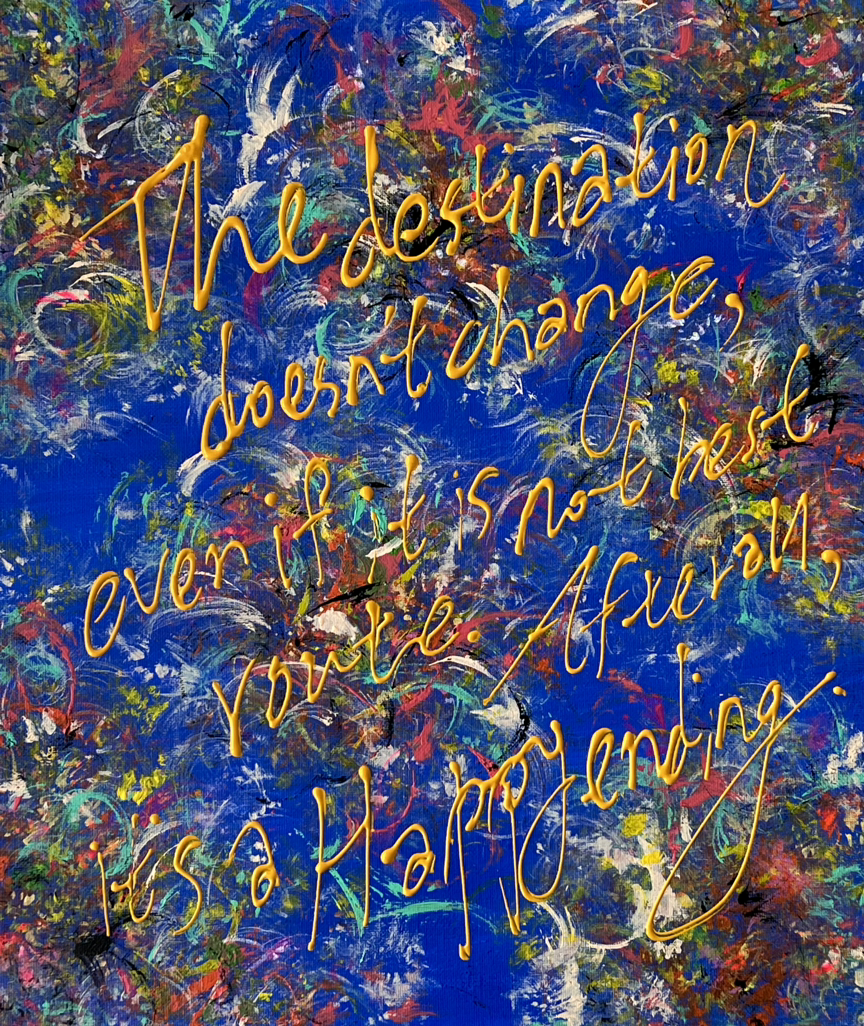 The destination
doesn't change,
even if it is not best
route. After all,
it's a Happy ending.